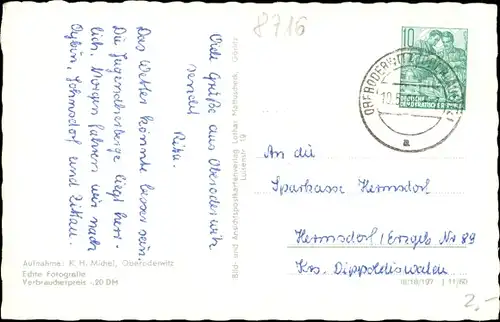 8716
Viele Grüße aus Oberoderwitz
sendet
Rita.
Das Wetter könnte besser sein.
Die Jugendherberge liegt herr-
lich. Morgen fahren wir nach
Oybin, Johnsdorf und Zittau.
Aufnahme: K. H. Michel, Oberoderwitz
Echte Fotografie
Verbraucherpreis -.20 DM
Bild- und Ansichtspostkartenverlag Lothar Mattuschek, Görlitz
Luisenstr. 19
10
DEUTSCHE
DEMOKRATISCHE
OBERODERWITZ
a
An die
Sparkasse Hermsdorf
Hermsdorf/Erzgeb Nr 89
Krs. Dippoldiswalde
III/18/197 J 11/60
2,-